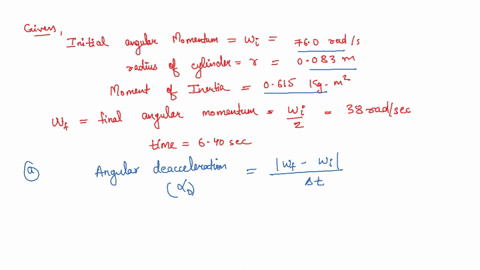 Given,
Initial angular Momentum = ωi = 76.0 rad/s
radius of cylinder = r = 0.083 m
Moment of Inertia = 0.615 Kg. m²
ωf = final angular momentum = ωi/2 = 38 rad/sec
time = 6.40 sec
(a) Angular deacceleration = |ωf - ωi| / Δt
(αD)